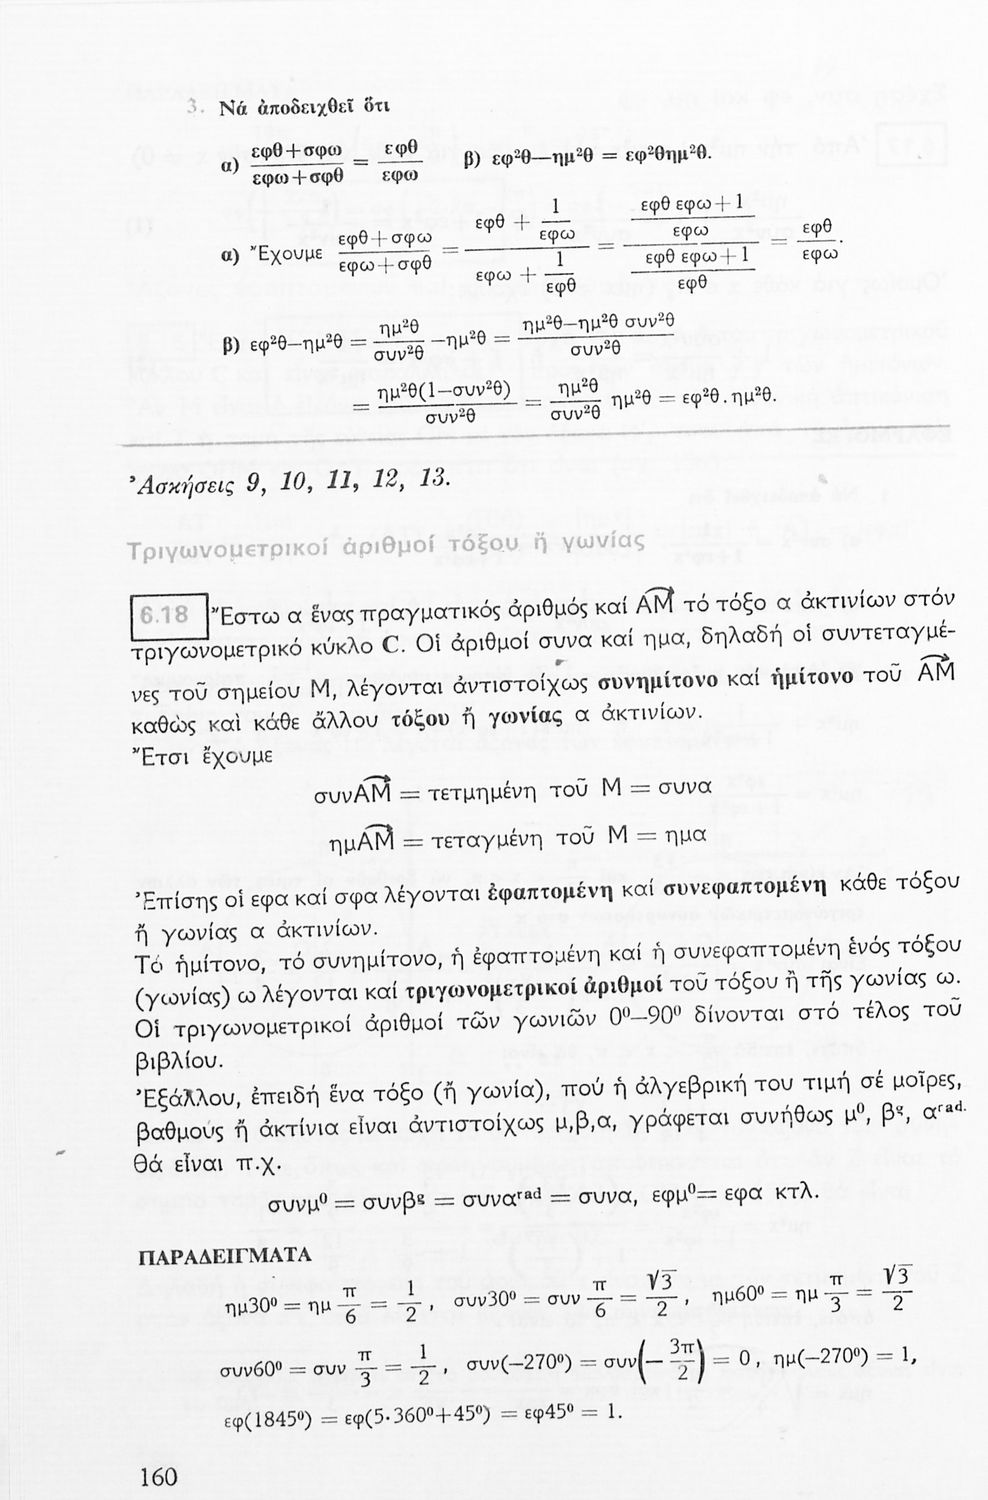 3. Νά ἀποδειχθεῖ ὅτι
α) (εφθ+σφω)/(εφω+σφθ) = εφθ/εφω β) εφ²θ—ημ²θ = εφ²θημ²θ.
α) Ἔχουμε (εφθ+σφω)/(εφω+σφθ) = (εφθ + 1/εφω)/(εφω + 1/εφθ) = ((εφθ εφω+1)/εφω)/((εφθ εφω+1)/εφθ) = εφθ/εφω.
β) εφ²θ—ημ²θ = ημ²θ/συν²θ —ημ²θ = (ημ²θ—ημ²θ συν²θ)/συν²θ
= ημ²θ(1—συν²θ)/συν²θ = ημ²θ/συν²θ ημ²θ = εφ²θ.ημ²θ.
Ἀσκήσεις 9, 10, 11, 12, 13.
Τριγωνομετρικοί ἀριθμοί τόξου ἤ γωνίας
6.18 Ἔστω α ἕνας πραγματικός ἀριθμός καί A͡M τό τόξο α ἀκτινίων στόν
τριγωνομετρικό κύκλο C. Οἱ ἀριθμοί συνα καί ημα, δηλαδή οἱ συντεταγμέ-
νες τοῦ σημείου M, λέγονται ἀντιστοίχως συνημίτονο καί ἡμίτονο τοῦ A͡M
καθὼς καὶ κάθε ἄλλου τόξου ἤ γωνίας α ἀκτινίων.
Ἔτσι ἔχουμε
συνA͡M = τετμημένη τοῦ M = συνα
ημA͡M = τεταγμένη τοῦ M = ημα
Ἐπίσης οἱ εφα καί σφα λέγονται ἐφαπτομένη καί συνεφαπτομένη κάθε τόξου
ἤ γωνίας α ἀκτινίων.
Τό ἡμίτονο, τό συνημίτονο, ἡ ἐφαπτομένη καί ἡ συνεφαπτομένη ἑνός τόξου
(γωνίας) ω λέγονται καί τριγωνομετρικοί ἀριθμοί τοῦ τόξου ἢ τῆς γωνίας ω.
Οἱ τριγωνομετρικοί ἀριθμοί τῶν γωνιῶν 0⁰—90⁰ δίνονται στό τέλος τοῦ
βιβλίου.
Ἐξάλλου, ἐπειδή ἕνα τόξο (ἤ γωνία), πού ἡ ἀλγεβρική του τιμή σέ μοῖρες,
βαθμούς ἤ ἀκτίνια εἶναι ἀντιστοίχως μ,β,α, γράφεται συνήθως μ⁰, βᵍ, αʳᵃᵈ·
θά εἶναι π.χ.
συνμ⁰ = συνβᵍ = συναʳᵃᵈ = συνα, εφμ⁰= εφα κτλ.
ΠΑΡΑΔΕΙΓΜΑΤΑ
ημ30⁰ = ημ π/6 = 1/2, συν30⁰ = συν π/6 = √3/2, ημ60⁰ = ημ π/3 = √3/2
συν60⁰ = συν π/3 = 1/2, συν(—270⁰) = συν(— 3π/2) = 0, ημ(—270⁰) = 1,
εφ(1845⁰) = εφ(5·360⁰+45⁰) = εφ45⁰ = 1.
160